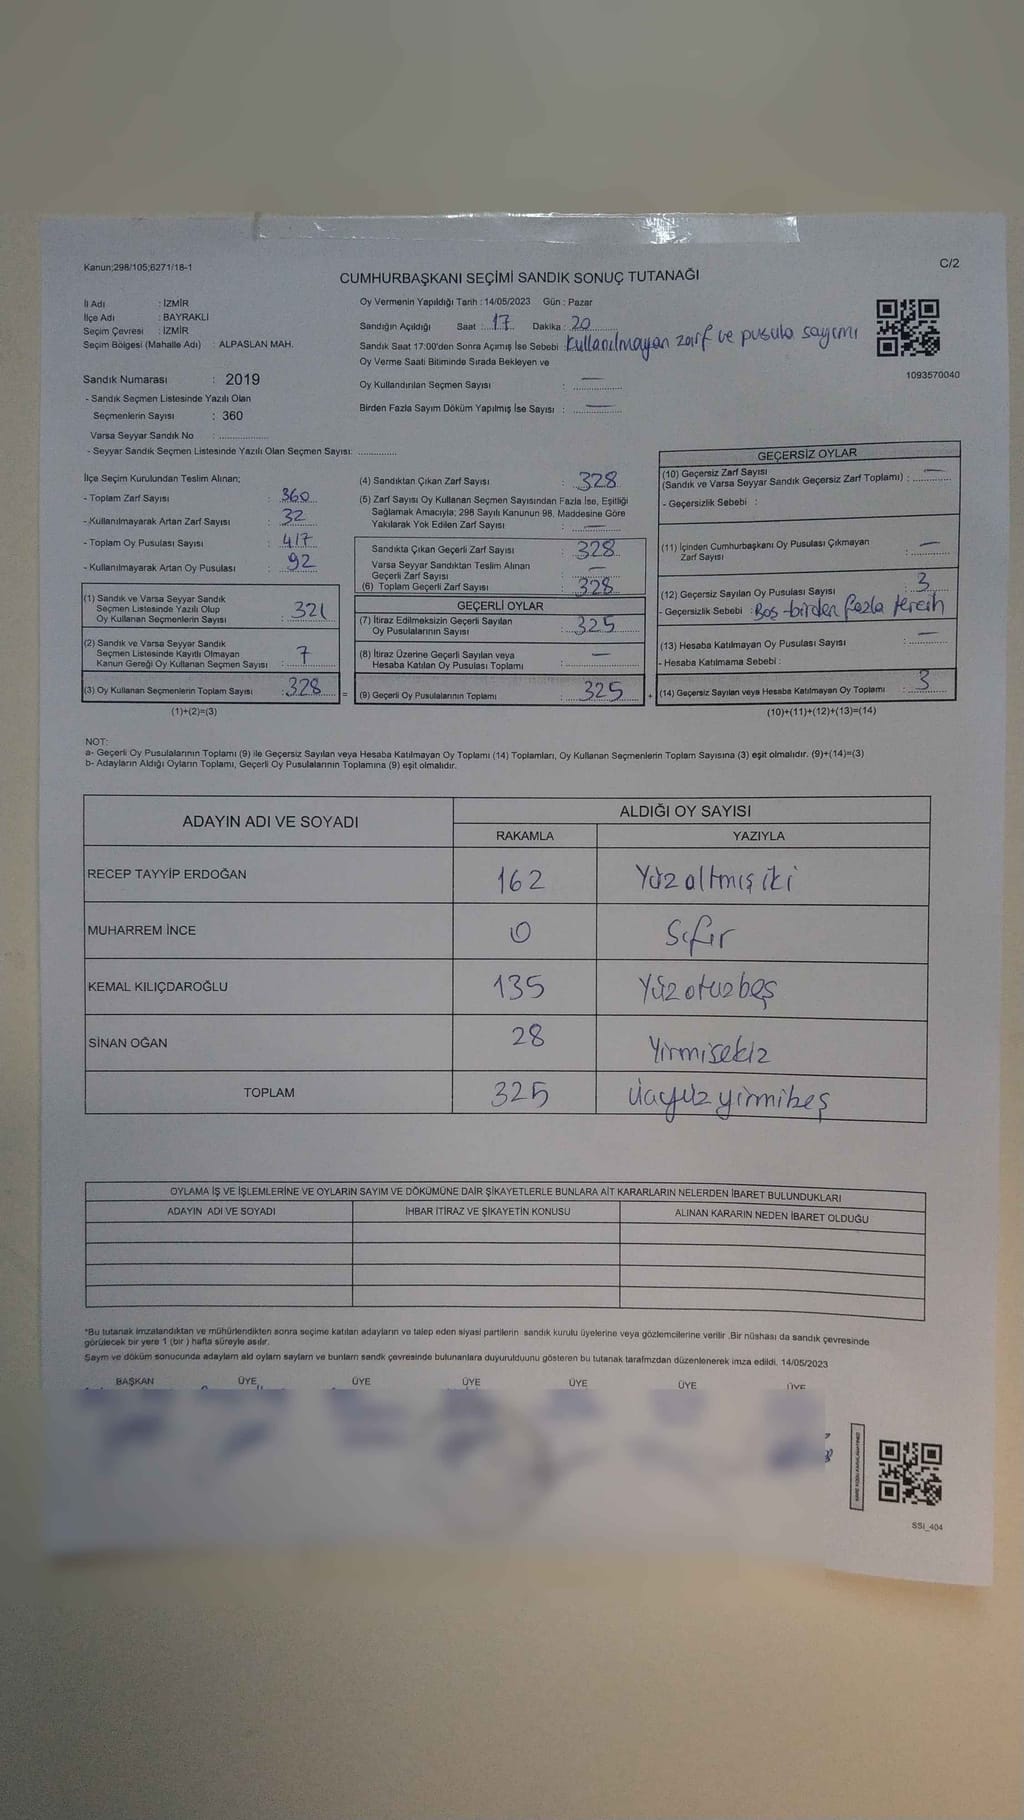 Kanun;298/105;6271/18-1
C/2
CUMHURBAŞKANI SEÇİMİ SANDIK SONUÇ TUTANAĞI
İl Adı : İZMİR
İlçe Adı : BAYRAKLI
Seçim Çevresi : İZMİR
Seçim Bölgesi (Mahalle Adı) : ALPASLAN MAH.
Sandık Numarası : 2019
- Sandık Seçmen Listesinde Yazılı Olan
Seçmenlerin Sayısı : 360
Varsa Seyyar Sandık No : ..................
- Seyyar Sandık Seçmen Listesinde Yazılı Olan Seçmen Sayısı: .............
Oy Vermenin Yapıldığı Tarih : 14/05/2023 Gün : Pazar
Sandığın Açıldığı Saat : 17 Dakika : 20
Sandık Saat 17:00'den Sonra Açımış İse Sebebi : Kullanılmayan zarf ve pusula sayımı
Oy Verme Saati Bitiminde Sırada Bekleyen ve
Oy Kullandırılan Seçmen Sayısı : —
Birden Fazla Sayım Döküm Yapılmış İse Sayısı : —
1093570040
İlçe Seçim Kurulundan Teslim Alınan;
- Toplam Zarf Sayısı : 360
- Kullanılmayarak Artan Zarf Sayısı : 32
- Toplam Oy Pusulası Sayısı : 417
- Kullanılmayarak Artan Oy Pusulası : 92
(1) Sandık ve Varsa Seyyar Sandık
Seçmen Listesinde Yazılı Olup
Oy Kullanan Seçmenlerin Sayısı : 321
(2) Sandık ve Varsa Seyyar Sandık
Seçmen Listesinde Kayıtlı Olmayan
Kanun Gereği Oy Kullanan Seçmen Sayısı : 7
(3) Oy Kullanan Seçmenlerin Toplam Sayısı : 328 =
(1)+(2)=(3)
(4) Sandıktan Çıkan Zarf Sayısı : 328
(5) Zarf Sayısı Oy Kullanan Seçmen Sayısından Fazla İse, Eşitliği
Sağlamak Amacıyla; 298 Sayılı Kanunun 98. Maddesine Göre
Yakılarak Yok Edilen Zarf Sayısı : —
Sandıkta Çıkan Geçerli Zarf Sayısı : 328
Varsa Seyyar Sandıktan Teslim Alınan
Geçerli Zarf Sayısı : —
(6) Toplam Geçerli Zarf Sayısı : 328
GEÇERLİ OYLAR
(7) İtiraz Edilmeksizin Geçerli Sayılan
Oy Pusulalarının Sayısı : 325
(8) İtiraz Üzerine Geçerli Sayılan veya
Hesaba Katılan Oy Pusulası Toplamı : —
(9) Geçerli Oy Pusulalarının Toplamı : 325 +
GEÇERSİZ OYLAR
(10) Geçersiz Zarf Sayısı
(Sandık ve Varsa Seyyar Sandık Geçersiz Zarf Toplamı) : —
- Geçersizlik Sebebi :
(11) İçinden Cumhurbaşkanı Oy Pusulası Çıkmayan
Zarf Sayısı : —
(12) Geçersiz Sayılan Oy Pusulası Sayısı : 3
- Geçersizlik Sebebi : Boş-birden fazla tercih
(13) Hesaba Katılmayan Oy Pusulası Sayısı : —
- Hesaba Katılmama Sebebi :
(14) Geçersiz Sayılan veya Hesaba Katılmayan Oy Toplamı : 3
(10)+(11)+(12)+(13)=(14)
NOT:
a- Geçerli Oy Pusulalarının Toplamı (9) ile Geçersiz Sayılan veya Hesaba Katılmayan Oy Toplamı (14) Toplamları, Oy Kullanan Seçmenlerin Toplam Sayısına (3) eşit olmalıdır. (9)+(14)=(3)
b- Adayların Aldığı Oyların Toplamı, Geçerli Oy Pusulalarının Toplamına (9) eşit olmalıdır.
ADAYIN ADI VE SOYADI ALDIĞI OY SAYISI
RAKAMLA YAZIYLA
RECEP TAYYİP ERDOĞAN 162 Yüzaltmışiki
MUHARREM İNCE 0 Sıfır
KEMAL KILIÇDAROĞLU 135 Yüzotuzbeş
SİNAN OĞAN 28 Yirmisekiz
TOPLAM 325 Üçyüzyirmibeş
OYLAMA İŞ VE İŞLEMLERİNE VE OYLARIN SAYIM VE DÖKÜMÜNE DAİR ŞİKAYETLERLE BUNLARA AİT KARARLARIN NELERDEN İBARET BULUNDUKLARI
ADAYIN ADI VE SOYADI İHBAR İTİRAZ VE ŞİKAYETİN KONUSU ALINAN KARARIN NEDEN İBARET OLDUĞU
*Bu tutanak imzalandıktan ve mühürlendikten sonra seçime katılan adayların ve talep eden siyasi partilerin sandık kurulu üyelerine veya gözlemcilerine verilir .Bir nüshası da sandık çevresinde
görülecek bir yere 1 (bir ) hafta süreyle asılır.
Sayım ve döküm sonucunda adayların ald oyların sayların ve bunların sandk çevresinde bulunanlara duyurulduunu gösteren bu tutanak tarafmzdan düzenlenerek imza edildi. 14/05/2023
BAŞKAN ÜYE ÜYE ÜYE ÜYE ÜYE ÜYE
SSI_404